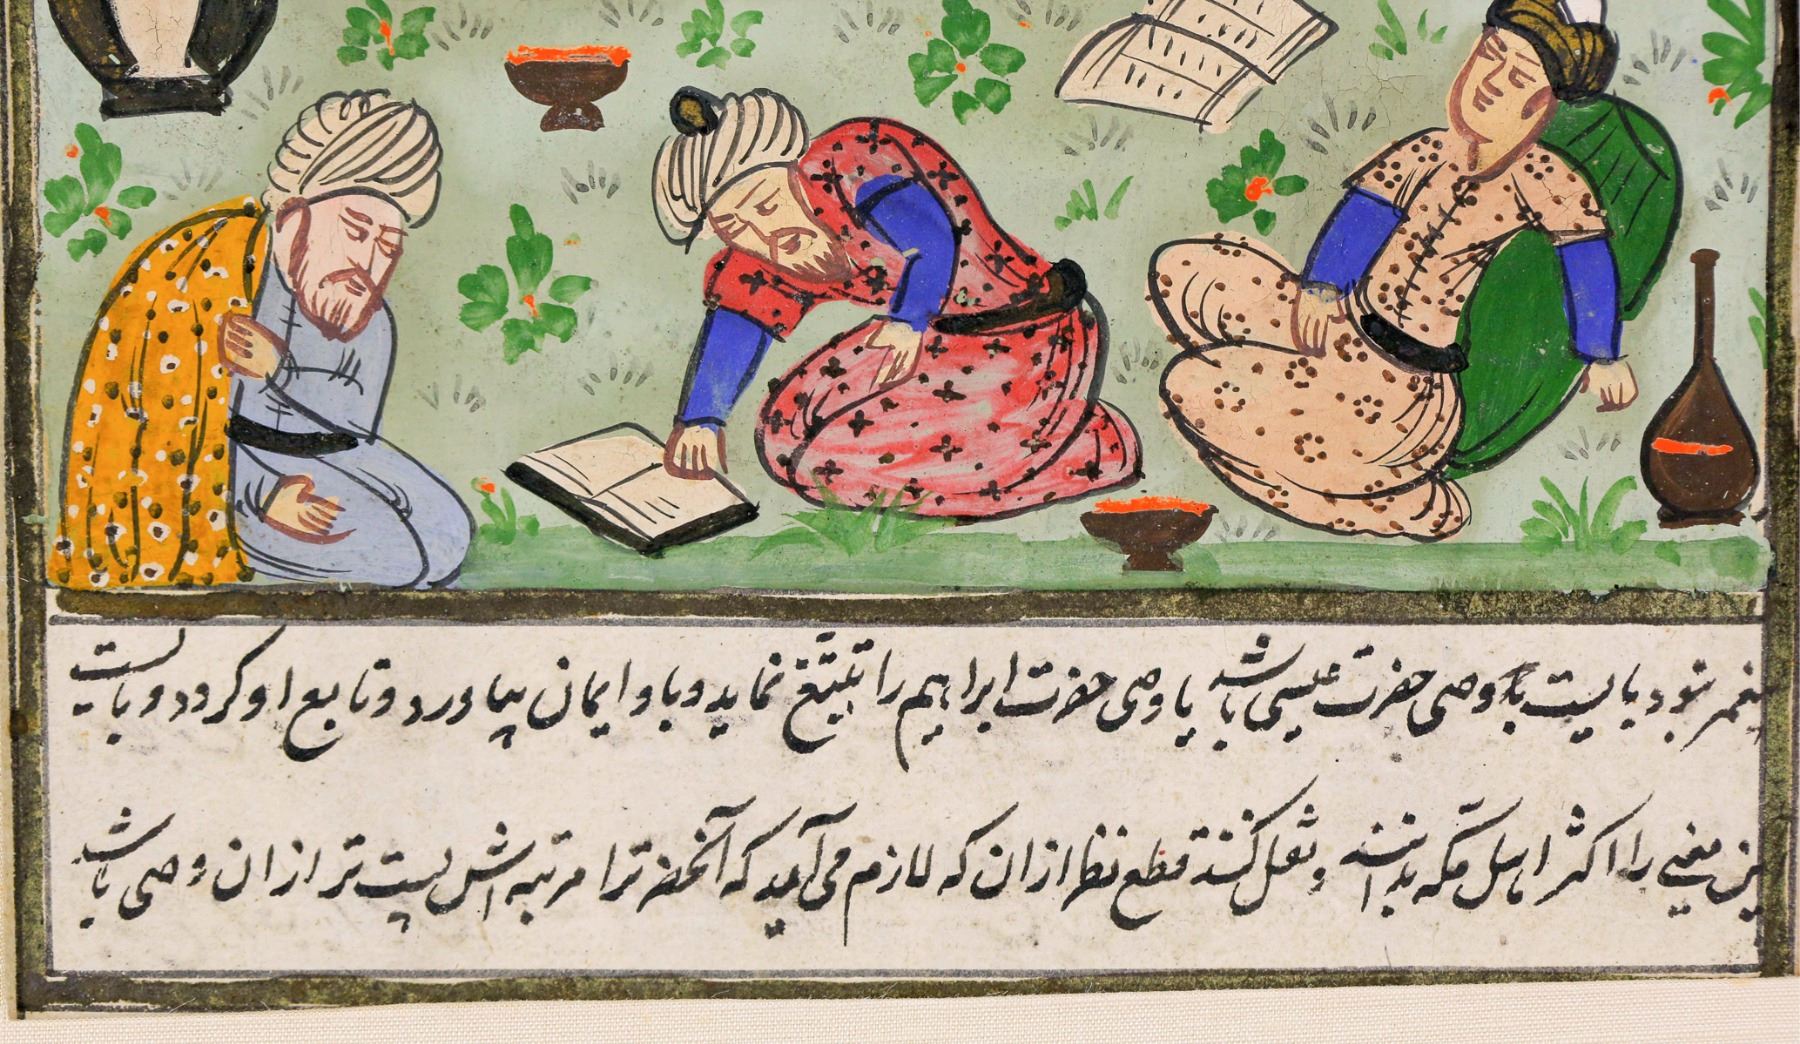 یغمبر بود بایست باوصی حضرت عیسی باشد یا وصی حضرت ابراهیم را تبلیغ نماید و باو ایمان بیاورد و تابع او کردد و بایست
این معنی را اکثر اهل مکه بدانند و نقل کنند قطع نظر از ان که لازم می آید که آنحضرت را مرتبه اش پست تر از ان وصی باشد